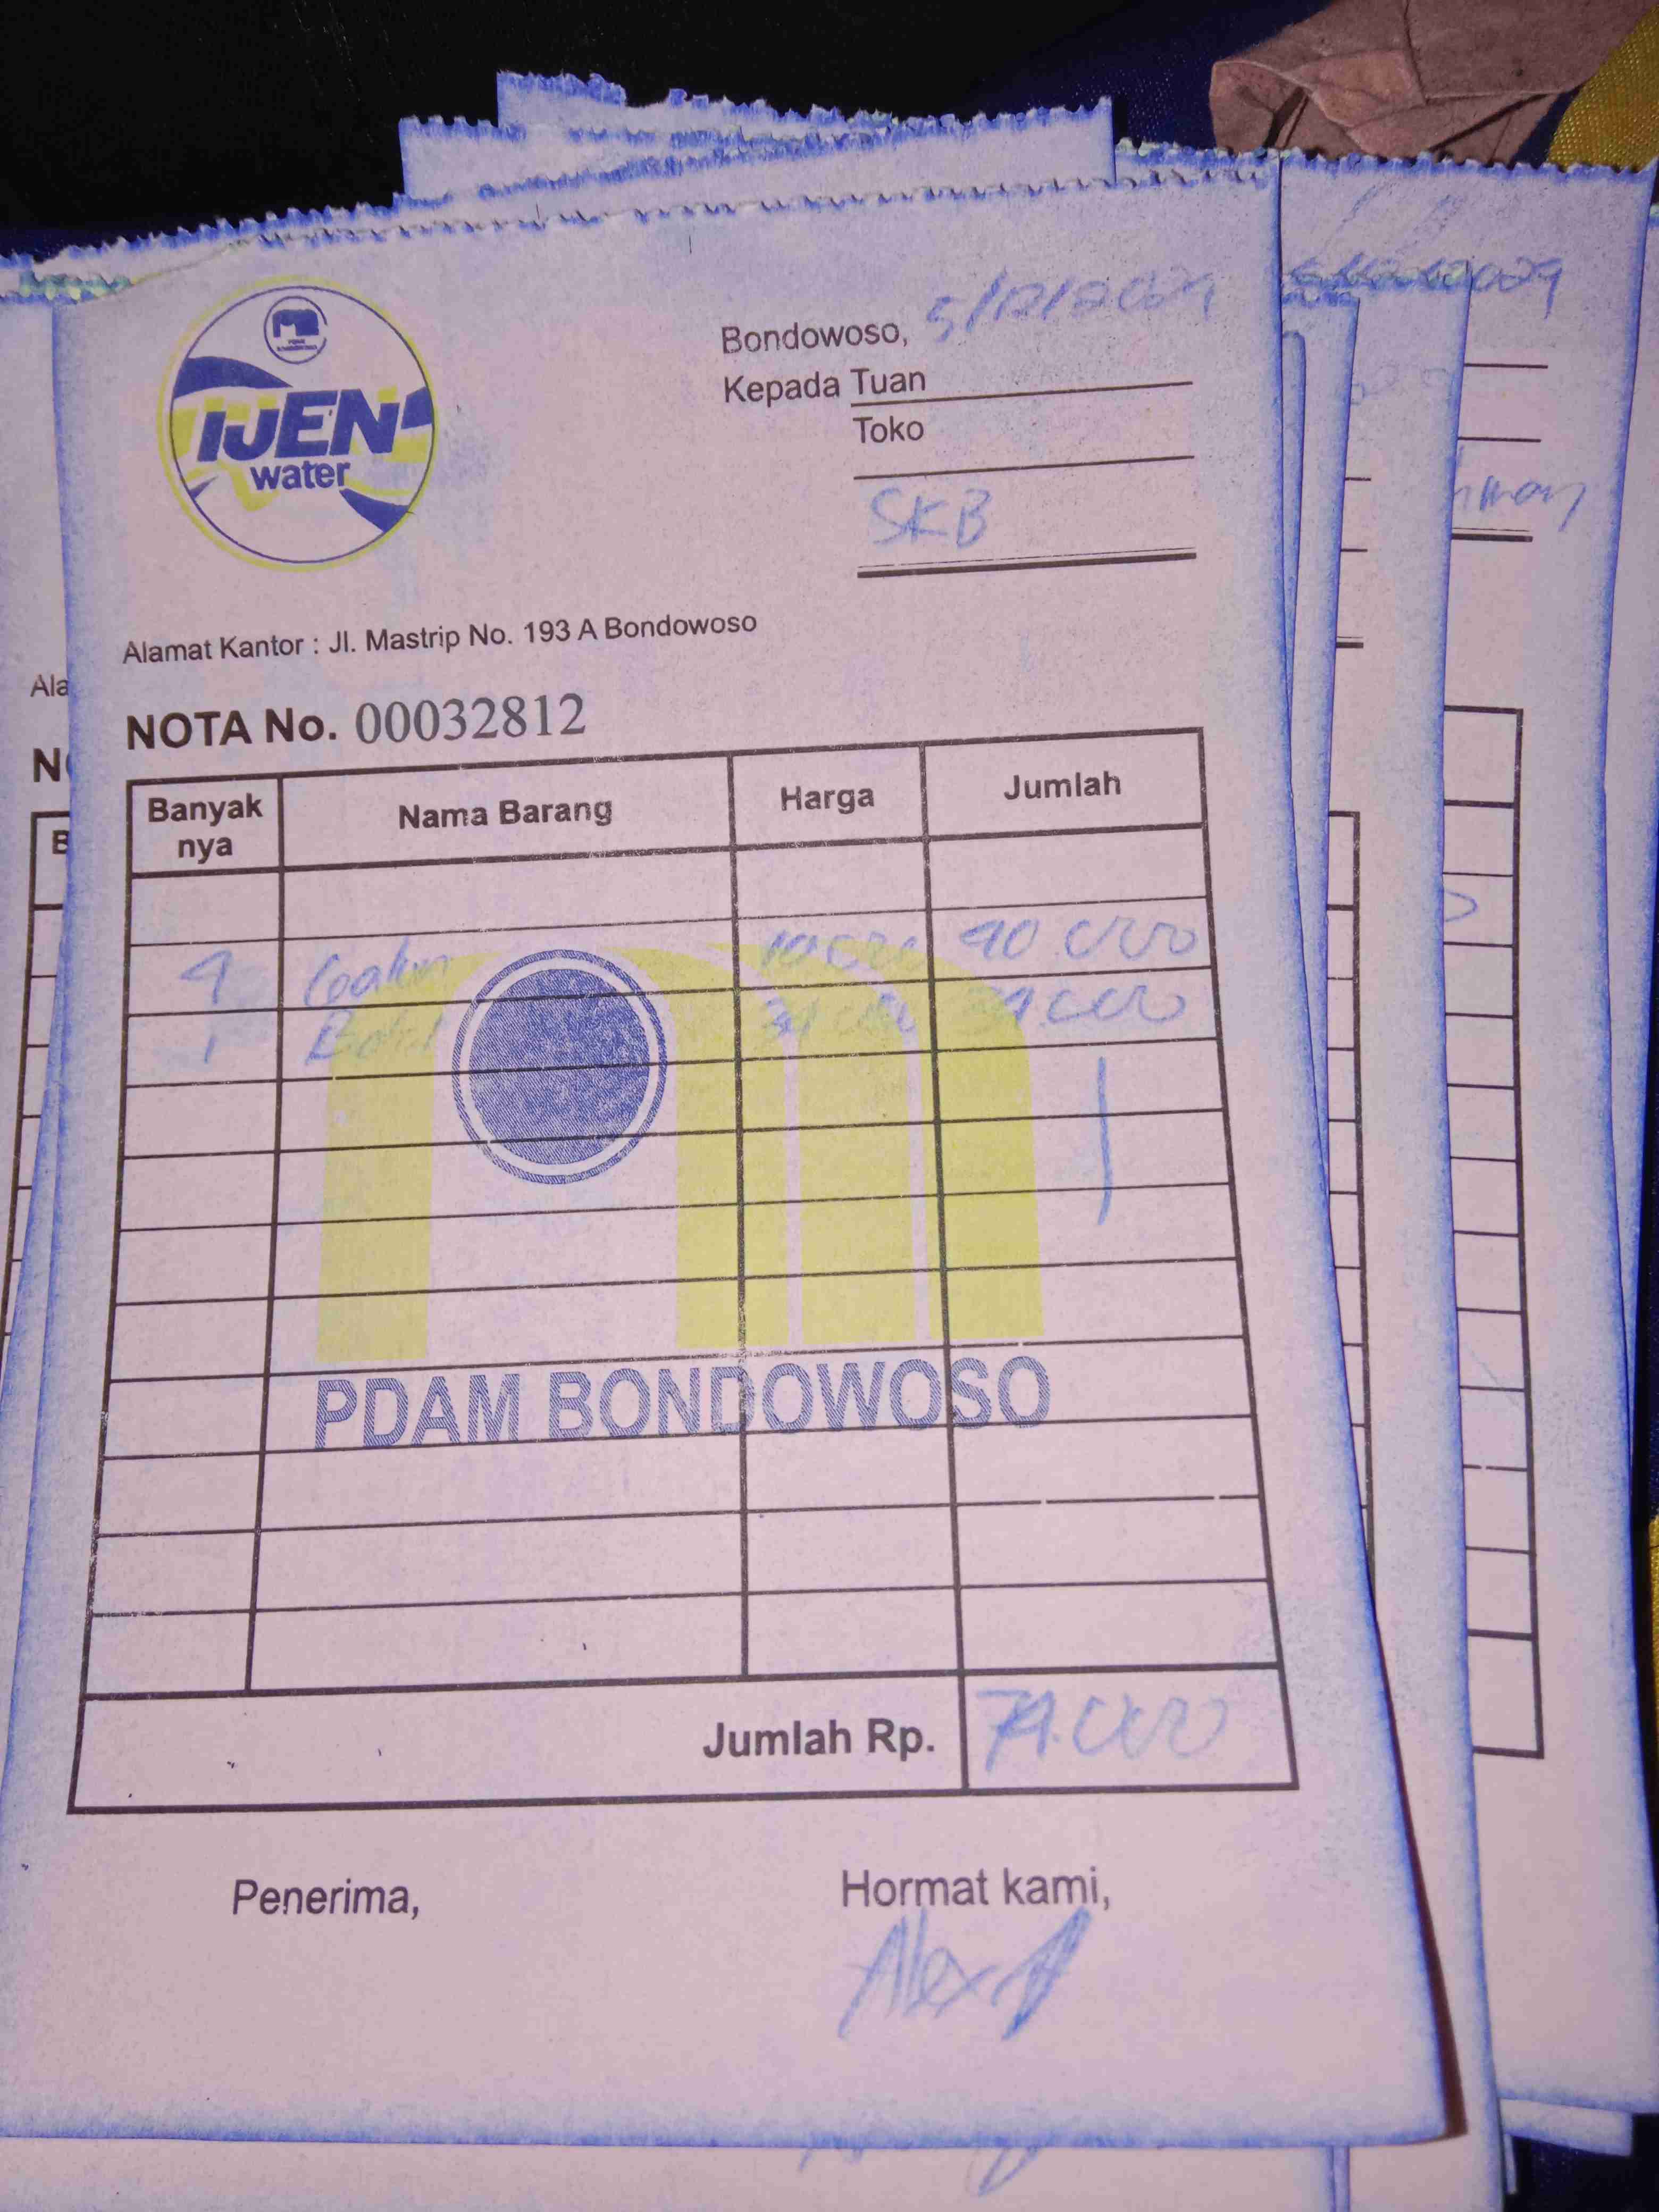 IJEN
water
Bondowoso, 5/12/2024
Kepada Tuan
Toko
SKB
Alamat Kantor : Jl. Mastrip No. 193 A Bondowoso
NOTA No. 00032812
Banyak nya Nama Barang Harga Jumlah
4 Galon 10.000 40.000
1 Botol 34.000 34.000
PDAM BONDOWOSO
Jumlah Rp. 74.000
Penerima, Hormat kami,
Alex